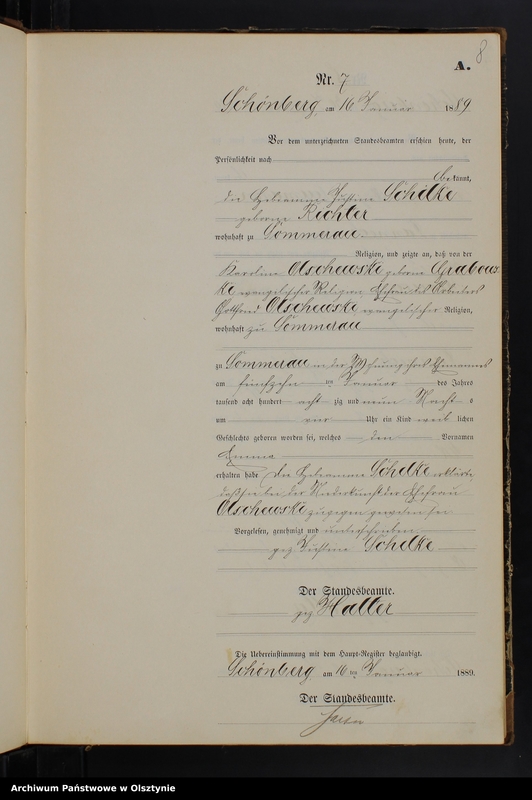 8
A.
Nr. 7
Schönberg am 16 Januar 1889.
Vor dem unterzeichneten Standesbeamten erschien heute, der
Persönlichkeit nach
bekannt,
die Hebeamme Justine Schelke
geborene Richter
wohnhaft zu Sommerau.
Religion, und zeigte an, daß von der
Karoline Olschewski geborne Grabows
ki evangelischer Religion Ehefrau des Arbeiters
Gottfried Olschewski evangelischer Religion,
wohnhaft zu Sommerau
zu Sommerau in der Wohnung ihres Ehemannes
am fünfzehn ten Januar des Jahres
tausend acht hundert acht zig und neun Nachts
um vier Uhr ein Kind weib lichen
Geschlechts geboren worden sei, welches den Vornamen
Emma
erhalten habe Die Hebeamme Schelke erklärte
daß sie bei der Niederkunft der Ehefrau
Olschewski zugegen gewesen sei
Vorgelesen, genehmigt und unterschrieben
gez Justine Schelke
Der Standesbeamte.
gez Halter
Die Uebereinstimmung mit dem Haupt-Register beglaubigt.
Schönberg am 16 ten Januar 1889.
Der Standesbeamte.
Archiwum Państwowe w Olsztynie